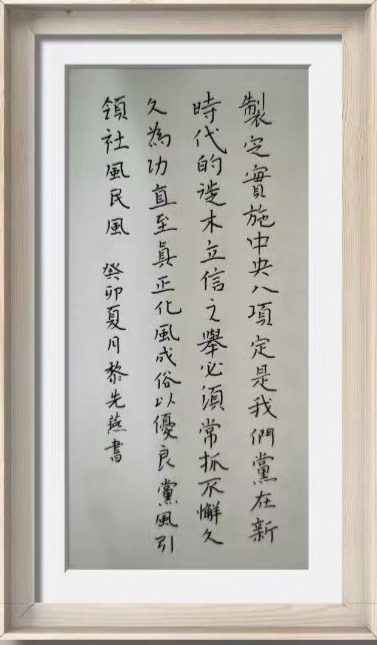 製定實施中央八項定是我們黨在新
時代的徙木立信之舉必須常抓不懈久
久為功直至真正化風成俗以優良黨風引
領社風民風 癸卯夏月黎先燕書